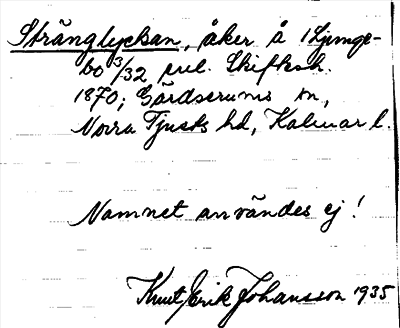 Stränglyckan, åker å Ljunge-
bo 3/32 enl. Skifksh.
1870; Gärdserums sn,
Norra Tjusts hd, Kalmar l.
Namnet användes ej!
Knut Erik Johansson 1935